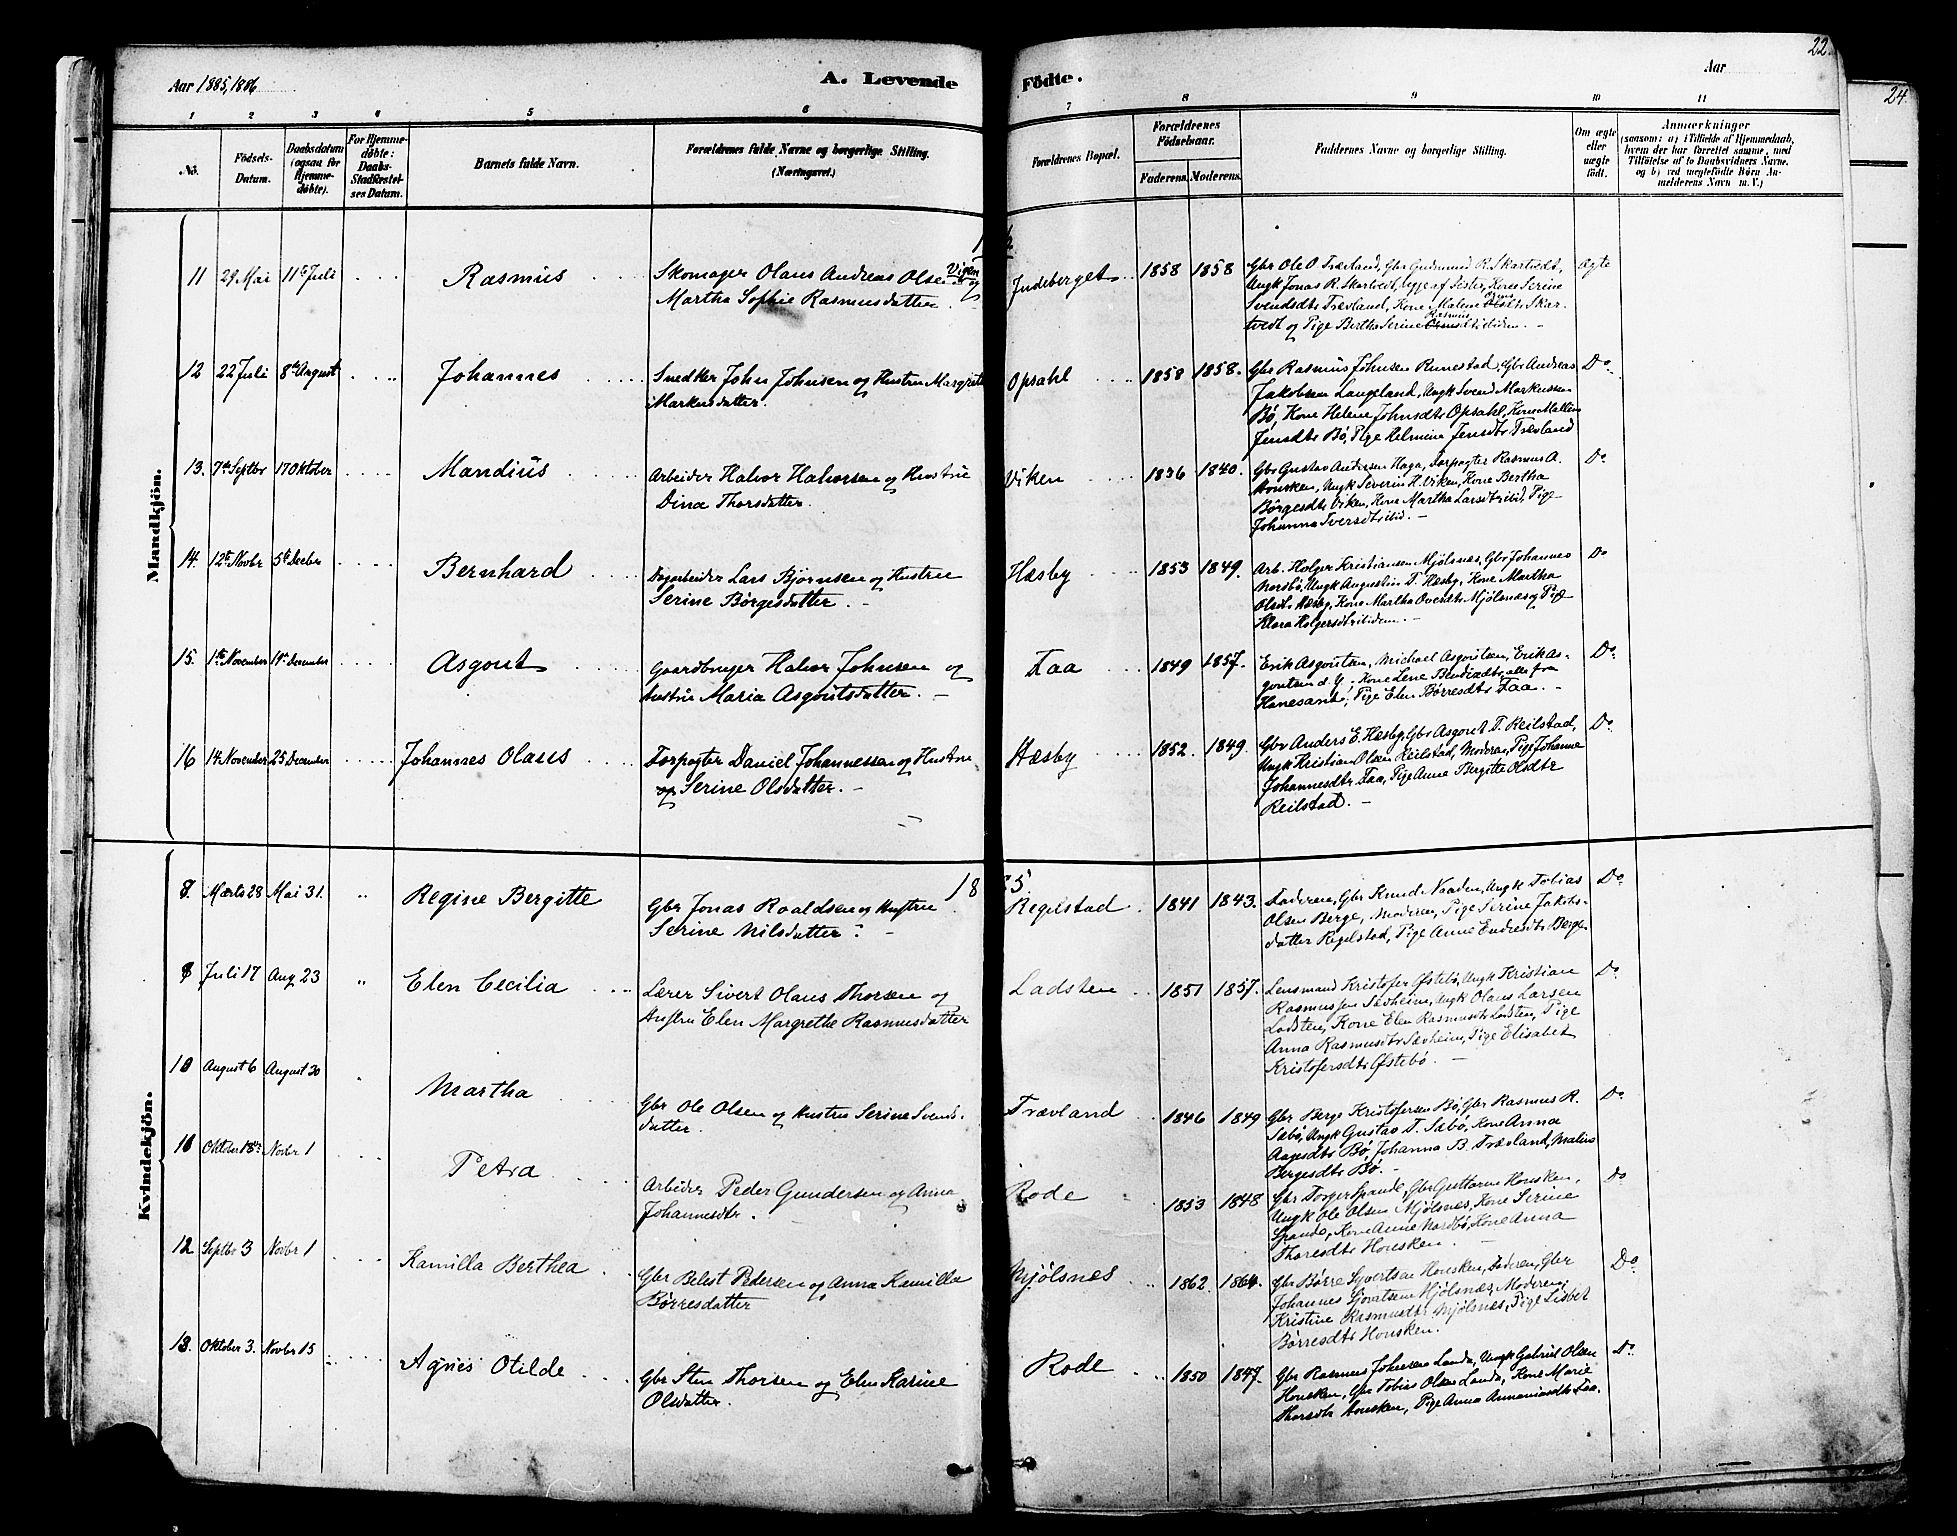 22.
24.
Aar 1885, 1886
A. Levende
Födte.
Aar
1 2 3 4 5 6 7 8 9 10 11
No.
Födsels-Datum.
Daabsdatum (ogsaa for Hjemmedöbte).
For Hjemmedöbte: Daabs-Stadfæstelses Datum.
Barnets fulde Navn.
Forældrenes fulde Navne og borgerlige Stilling. (Næringsvei.)
Forældrenes Bopæl.
Forældrenes Födselsaar.
Faderens. Moderens.
Faddernes Navne og borgerlige Stilling.
Om ægte eller uægte födt.
Anmærkninger
(saasom: a) i Tilfælde af Hjemmedaab, hvem der har forrettet samme, med Tilföielse af to Daabsvidners Navne. og b) ved uægtefödte Börn Anmelderens Navn m. V.)
Mandkjön.
11 29 Mai 11te Juli Rasmus
Skomager Olaus Andreas Olsen Vigen og
Martha Sophie Rasmusdatter.
Indeberget 1858 1858
Gbr Ole O. Trævland, Gbr Gudmund R. Skartvedt,
Ungk Jonas R. Skartvedt, Kone Serine
Svendsdtr Trævland, Kone Malene
tvedt og Pige Bertha Serine
Ægte
12 22 Juli 8de August Johannes
Snedker John Johnsen og Hustru Margrete
Markusdatter.
Opsahl 1858 1858.
Gbr Rasmus Johnsen Runestad, Gbr Andreas
Jakobsen Langeland, Ungk Svend Markussen
Bø, Kone Helene Johnsdtr Opsahl, Kone Mallene
Jensdtr Bø, Pige Helmine Jensdtr Trævland
Do
13. 7de Septbr 17 Oktober Mandius
Arbeider Halvor Halvorsen og Hustru
Dina Thorsdatter.
Viken 1836 1840.
Gbr Gustav Andersen Haga, Forpagter Rasmus A.
Housken, Ungk Severin H. Viken, Kone Bertha
Børgesdtr Viken, Kone Martha Larsdtr ibid, Pige
Johanna Iversdtr ibid. –
Do
14. 12te Novbr 5te Decbr Bernhard
Dagarbeider Lars Bjørnsen og Hustru
Serine Børgesdatter. –
Hæsby 1853 1849.
Arb. Holger Kristiansen Mjølsnæs, Gbr Johannes
Nordbø, Ungk Augustin T. Hæsby, Kone Martha
Olsdtr Hæsby, Kone Martha Overdtr Mjølsnæs og Pige
Klara Holgersdtr ibidem. –
Do
15. 1ste November 19de December Asgout
Gaardbruger Halvor Johnsen og
Hustru Maria Asgoutsdatter. –
Faa 1849 1857.
Erik Asgoutsen, Michael Asgoutsen, Erik As-
goutsen d. Y. Kone Lene alle fra
Hanesand, Pige Elen Børresdtr Faa. –
Do
16 14 November 25 December Johannes Olaus
Forpagter Daniel Johannessen og Hustru
og Serine Olsdatter. –
Hæsby 1852. 1849.
Gbr Anders E. Hæsby, Gbr Asgout T. Reilstad,
Ungk Kristian Olsen Reilstad, Moderen, Pige Johanne
Johannesdtr Faa, Pige Anne Bergitte Olsdtr
Reilstad. –
Do
Kvindekjön.
1885
8. Marts 28 Mai 31. Regine Bergitte
Gbr Jonas Roaldsen og Hustru
Serine Nilsdatter. –
Regelstad 1841 1843.
Faderen, Gbr Knud Naaden, Ungk Tobias
Olsen Berge, Moderen, Pige Serine Jakobs-
datter Regelstad, Pige Anne Endresdtr Berge
Do
9 Juli 17 Aug 23 Elen Cecilia
Lærer Sivert Olaus Thorsen og
Hustru Elen Margrethe Rasmusdatter
Ladsten 1851 1857.
Lensmand Kristofer Østebø, Ungk Kristian
Rasmussen Sævheim, Ungk Olaus Larsen
Ladsten, Kone Elen Rasmusdtr Ladsten, Pige
Anna Rasmusdtr Sævheim, Pige Elisabet
Kristofersdtr Østebø. –
Do
10 August 6 August 30 Martha
Gbr Ole Olsen og Hustru Serine Svends-
datter.
Trævland 1846 1849
Gbr Berge Kristofersen Bø, Gbr Rasmus R.
Sæbø, Ungk Gustav T. Sæbø, Kone Anna
Aagesdtr Bø, Johanna B. Trævland, Malene
Bergesdtr Bø. –
Do
Oktober 18de Novbr 1 Petra
Arbeider Peder Gundersen og Anna
Johannesdtr.
Rode 1853 1848
Gbr Torger Spande, Gbr Guttorm Housken,
Ungk Ole Olsen Mjølsnes, Kone Serine
Spande, Kone Anne Nordbø, Kone Anna
Thoresdtr Housken.
Do
12 Septbr 3 Novbr 1 Kamilla Berthea
Gbr Pedersen og Anna Kamilla
Børresdatter
Mjølsnes 1862. 1864.
Gbr Børre Sjvertsen Housken, Faderen, Gbr
Johannes Sjovatsen Mjølsnæs, Moderen,
Kristine Rasmusdtr Mjølsnes, Pige Lisbet
Børresdtr Housken.
Do
13. Oktober 3. Novbr 15 Agnes Otilde
Gbr Sten Thorsen og Elen Karine
Olsdatter.
Rode 1850 1847.
Gbr Rasmus Johnsen Landa, Ungk Gabriel Olsen
Housken, Gbr Tobias Olsen Landa, Kone Marie
Thorsdtr Housken, Pige Anna Faa.
Do